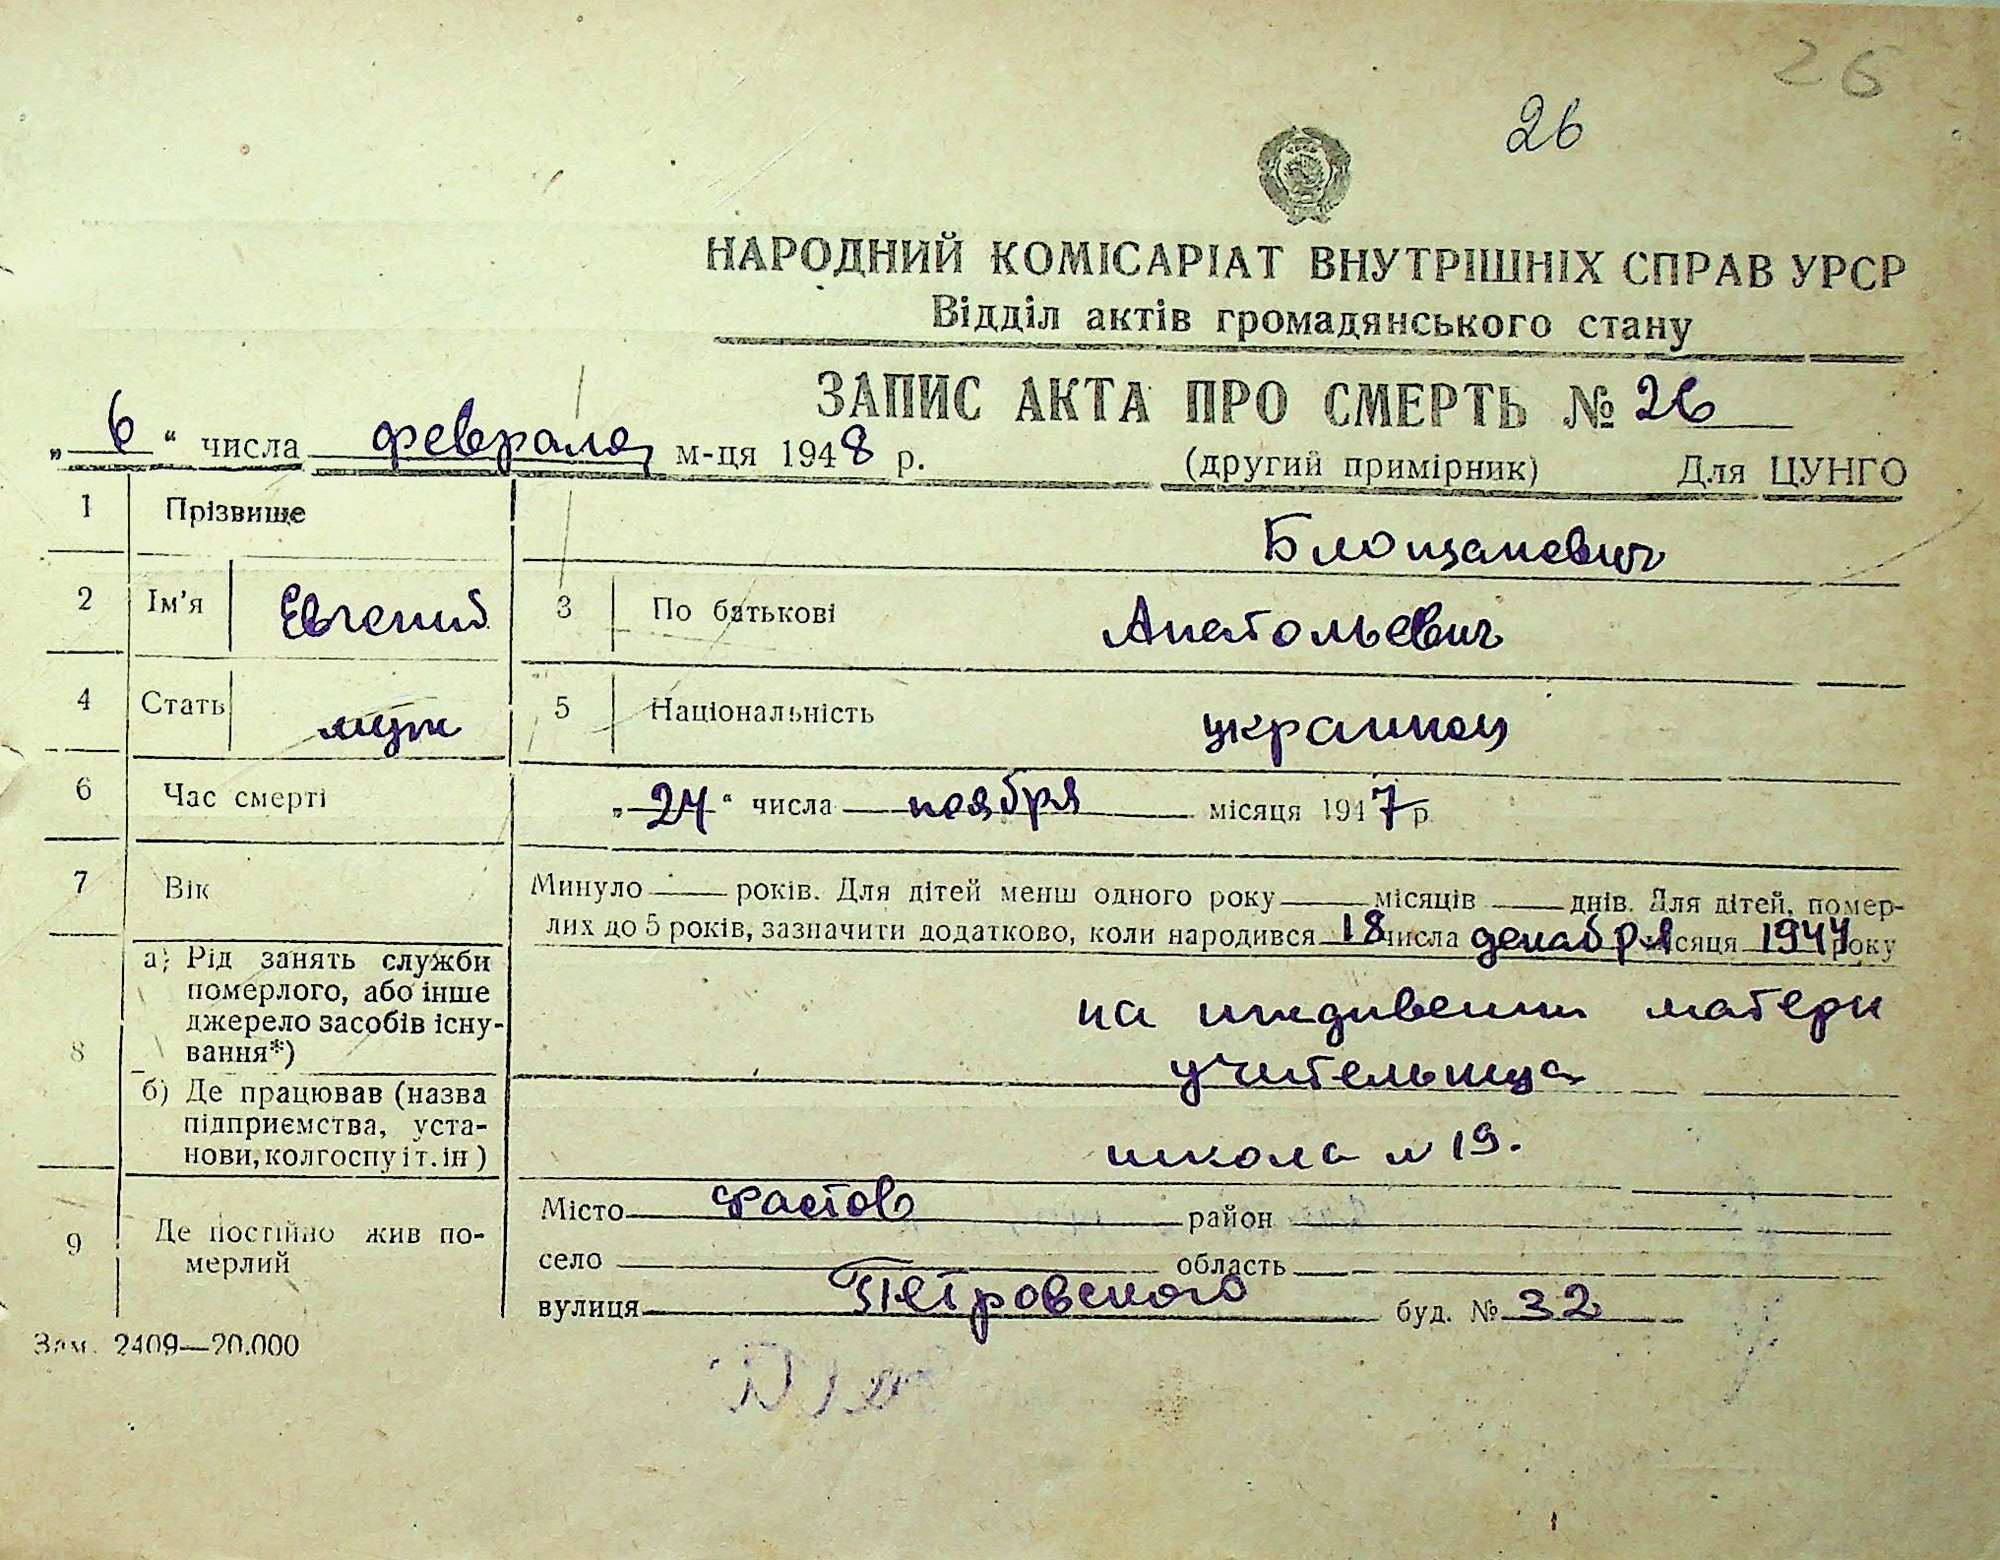 26
26
НАРОДНИЙ КОМІСАРІАТ ВНУТРІШНІХ СПРАВ УРСР
Відділ актів громадянського стану
ЗАПИС АКТА ПРО СМЕРТЬ № 26
„ 6 “ числа февраля м-ця 1948 р. (другий примірник) Для ЦУНГО
1 Прізвище Блощаневич
2 Ім’я Евгений 3 По батькові Анатольевич
4 Стать муж 5 Національність украинец
6 Час смерті „ 24 “ числа ноября місяця 1947 р
7 Вік Минуло років. Для дітей менш одного року місяців днів. Для дітей, помер-
лих до 5 років, зазначити додатково, коли народився 18 числа декабря місяця 1944 року
8 а) Рід занять служби
померлого, або інше
джерело засобів існу-
вання*)
на иждивении матери
учительница
б) Де працював (назва
підприємства, уста-
нови, колгоспу і т. ін)
школа N 19.
9 Де постійно жив по-
мерлий
Місто Фастов район
село область
вулиця Петровского буд. № 32
Зам. 2409—20.000